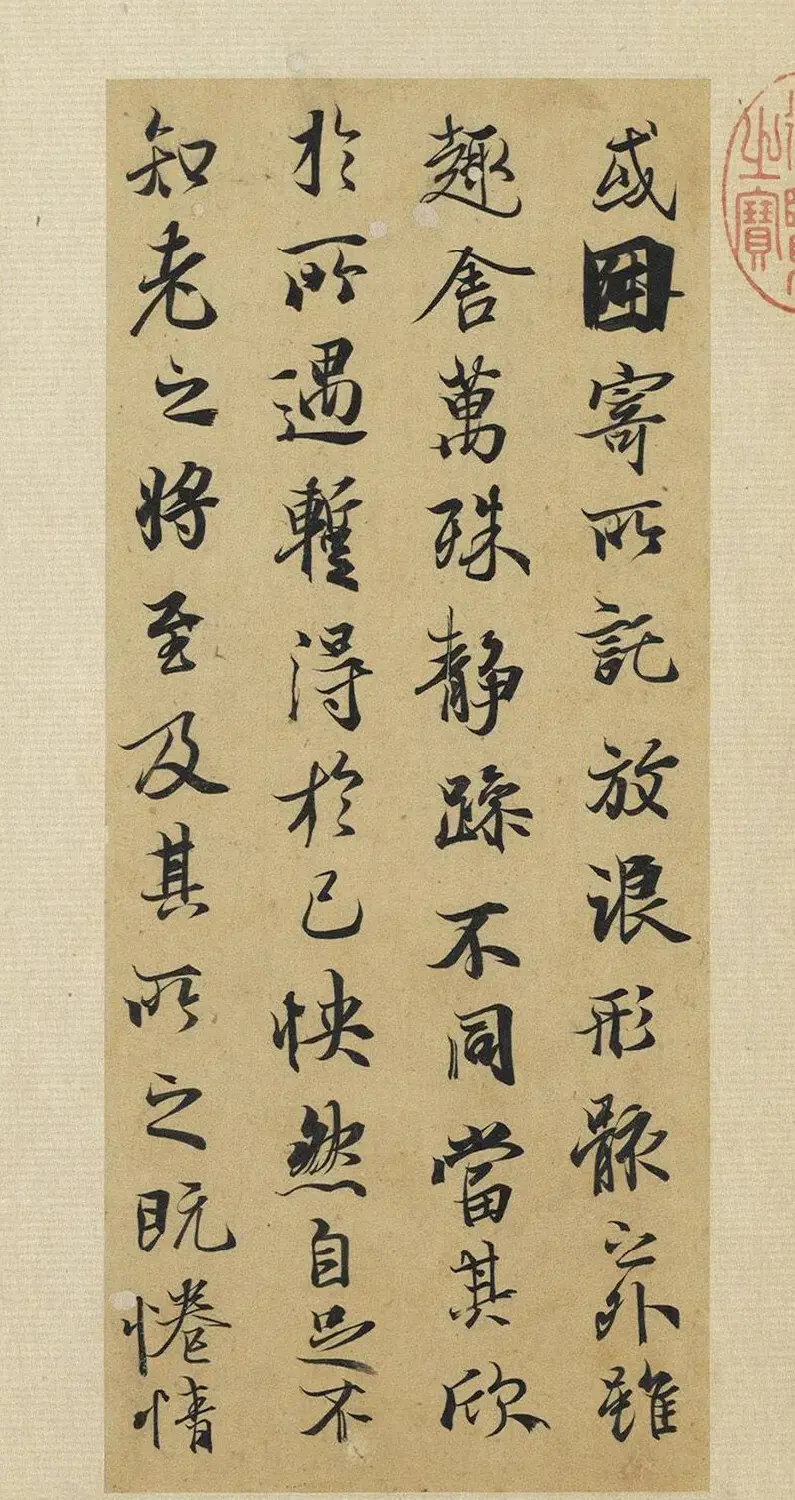 之寶
或因寄所託放浪形骸之外雖
趣舍萬殊静躁不同當其欣
於所遇蹔得於己怏然自足不
知老之将至及其所之既惓情